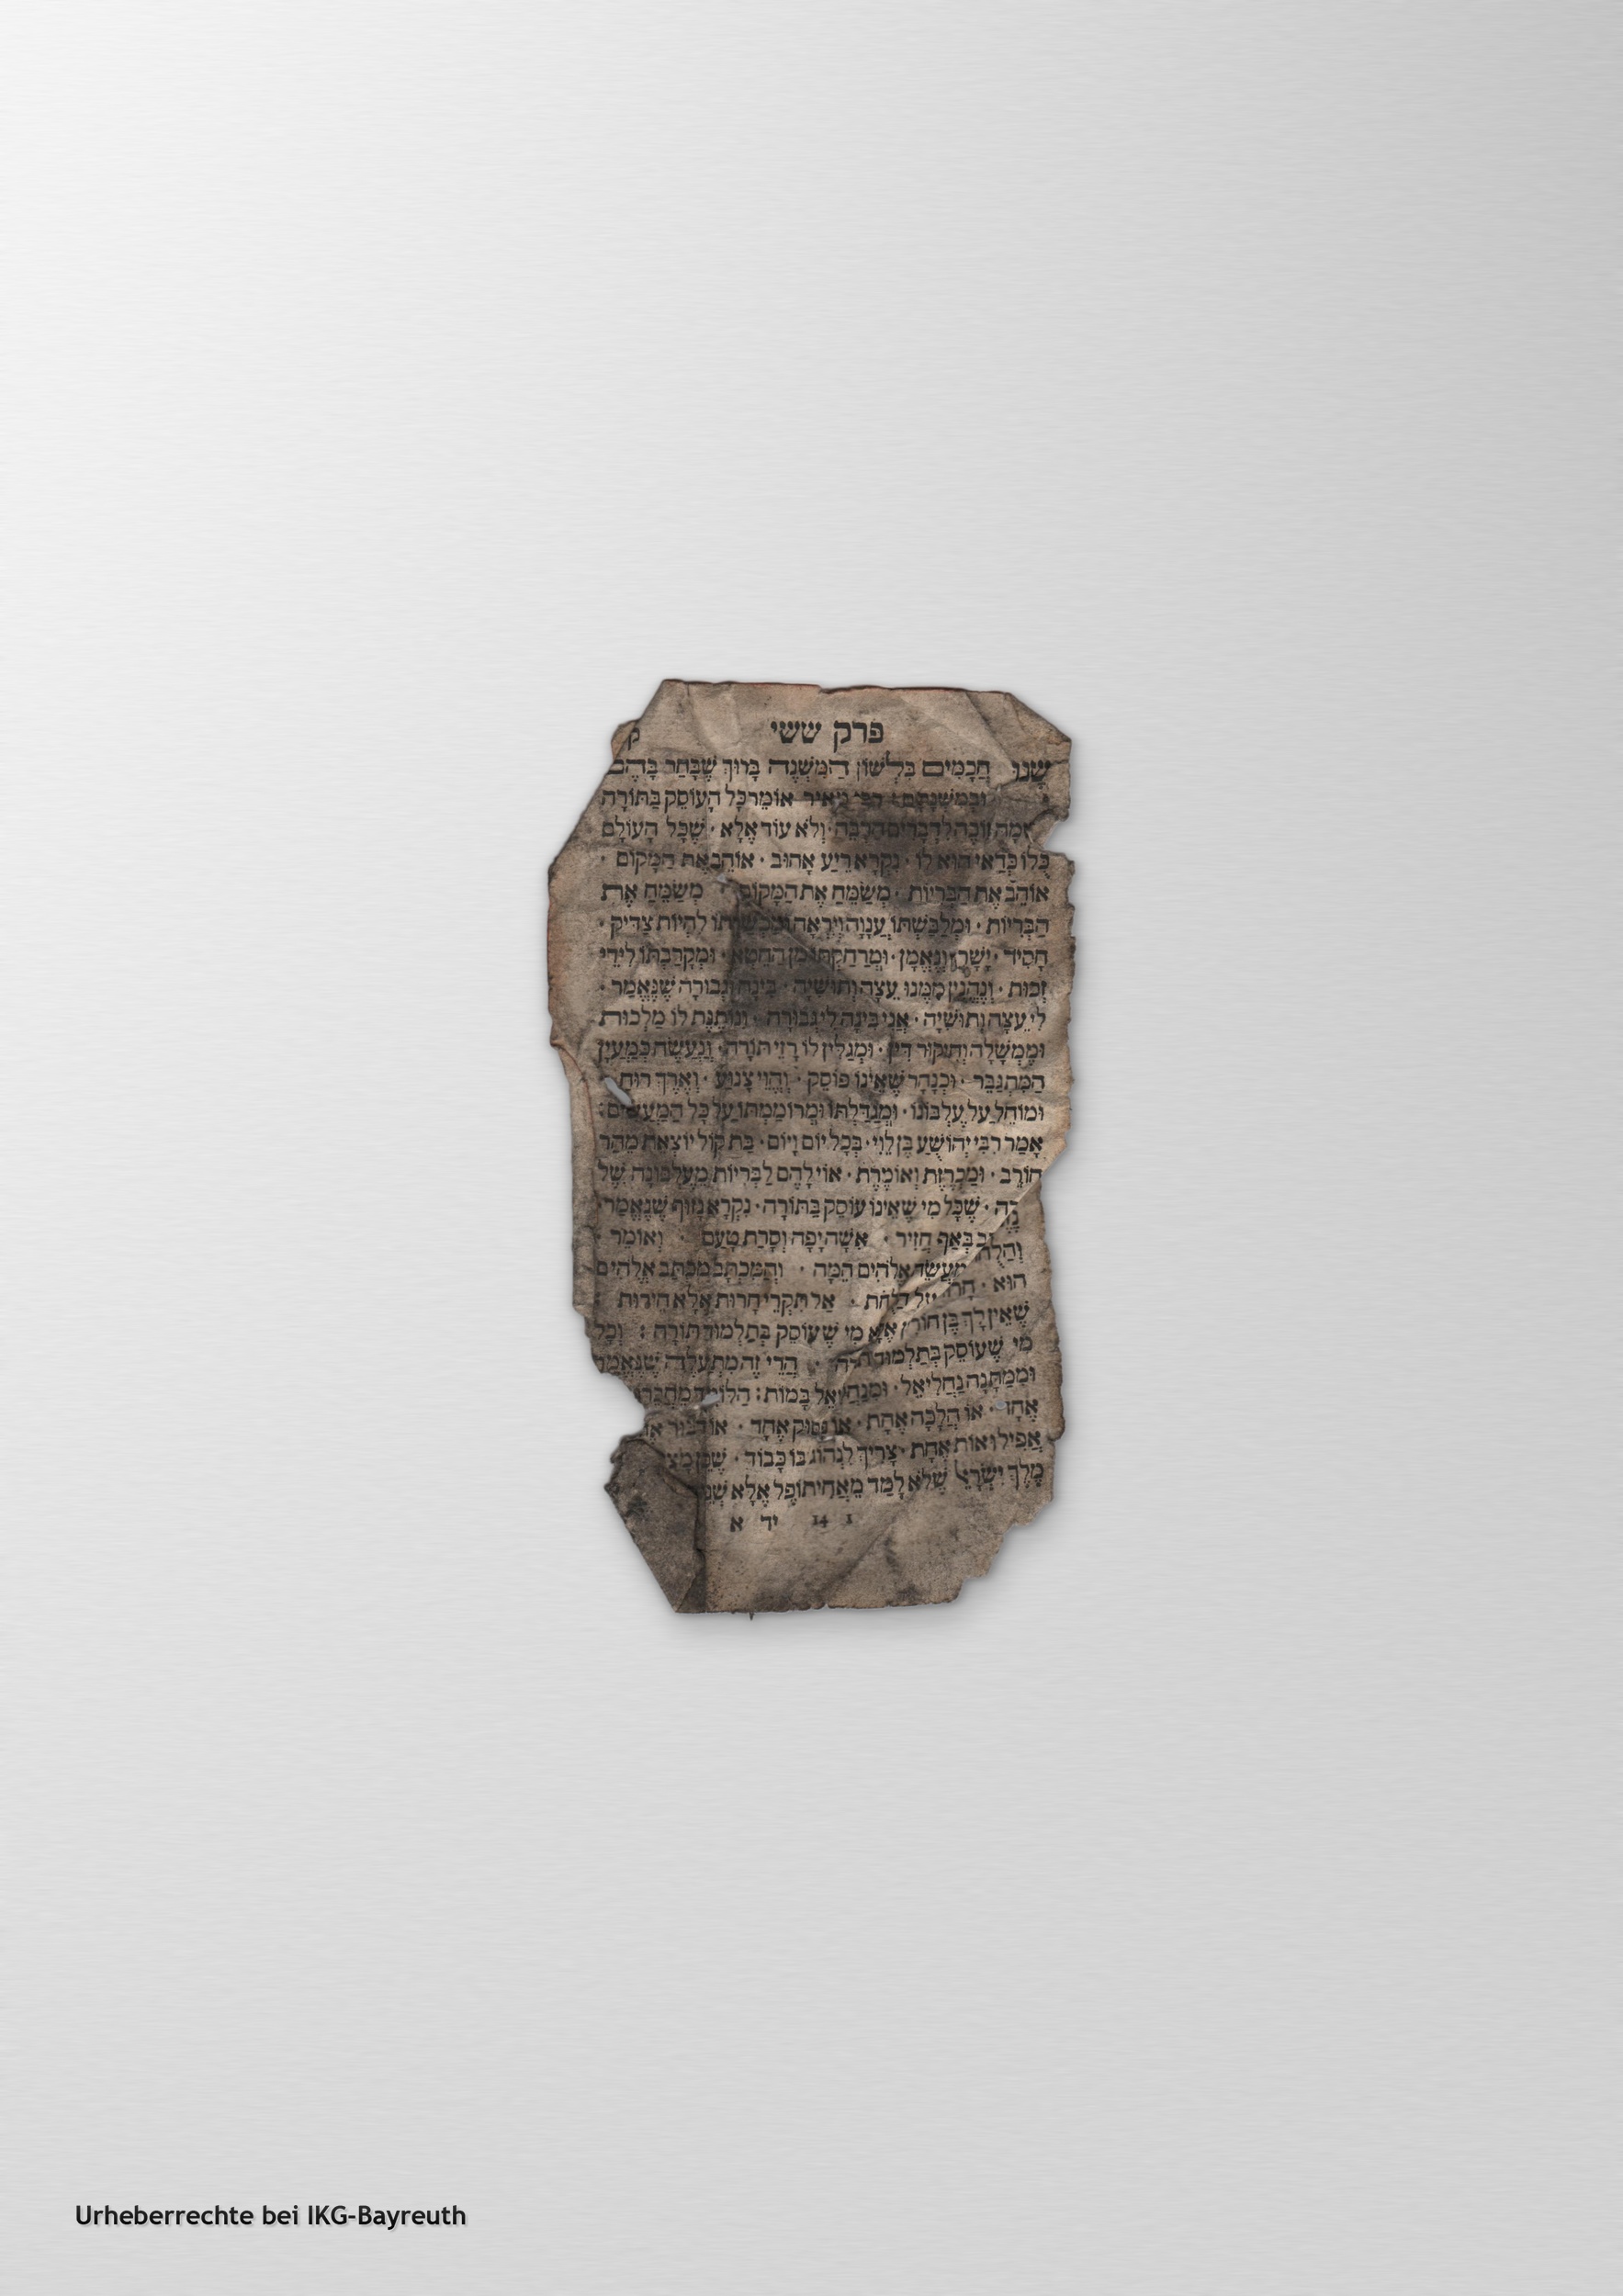 פרק ששי
ק
שנו חֲכָמִים בִּלְשׁוֹן הַמִּשְׁנָה בָּרוּךְ שֶׁבָּחַר בָּהֶם
וּבְמִשְׁנָתָם: רבי מֵאִיר אוֹמֵר כָּל הָעוֹסֵק בַּתּוֹרָה
זוֹכֶה לִדְבָרִים הַרְבֵּה · וְלֹא עוֹד אֶלָּא · שֶׁכָּל הָעוֹלָם
כֻּלּוֹ כְּדַאי הוּא לוֹ · נִקְרָא רֵיעַ אָהוּב · אוֹהֵב אֶת הַמָּקוֹם ·
אוֹהֵב אֶת הַבְּרִיּוֹת · מְשַׂמֵּחַ אֶת הַמָּקוֹם · מְשַׂמֵּחַ אֶת
הַבְּרִיּוֹת · וּמַלְבַּשְׁתּוֹ עֲנָוָה וְיִרְאָה וּמַכְשַׁרְתּוֹ לִהְיוֹת צַדִּיק ·
חָסִיד · יָשָׁר וְנֶאֱמָן · וּמְרַחַקְתּוֹ מִן הַחֵטְא · וּמְקָרַבְתּוֹ לִידֵי
זְכוּת · וְנֶהֱנִין מִמֶּנּוּ עֵצָה וְתוּשִׁיָּה · בִּינָה וּגְבוּרָה שֶׁנֶּאֱמַר ·
לִי עֵצָה וְתוּשִׁיָּה · אֲנִי בִינָה לִי גְבוּרָה · וְנוֹתֶנֶת לוֹ מַלְכוּת
וּמֶמְשָׁלָה וְחִיקּוּר דִּין · וּמְגַלִּין לוֹ רָזֵי תוֹרָה · וְנַעֲשֶׂה כְּמַעְיָן
הַמִּתְגַּבֵּר · וּכְנָהָר שֶׁאֵינוֹ פוֹסֵק · וְהֱוֵי צָנוּעַ · וְאֶרֶךְ רוּחַ
וּמוֹחֵל עַל עֶלְבּוֹנוֹ · וּמְגַדַּלְתּוֹ וּמְרוֹמַמְתּוֹ עַל כָּל הַמַּעֲשִׂים:
אָמַר רַבִּי יְהוֹשֻׁעַ בֶּן לֵוִי · בְּכָל יוֹם וָיוֹם · בַּת קוֹל יוֹצֵאת מֵהַר
חוֹרֵב · וּמַכְרֶזֶת וְאוֹמֶרֶת · אוֹי לָהֶם לַבְּרִיּוֹת מֵעֶלְבּוֹנָהּ שֶׁל
רָה · שֶׁכָּל מִי שֶׁאֵינוֹ עוֹסֵק בַּתּוֹרָה · נִקְרָא נָזוּף שֶׁנֶּאֱמַר ·
בְּאַף חֲזִיר · אִשָּׁה יָפָה וְסָרַת טָעַם · וְאוֹמֵר ·
וְהַלֻּחֹת מַעֲשֵׂה אֱלֹהִים הֵמָּה · וְהַמִּכְתָּב מִכְתַּב אֱלֹהִים
הוּא · הַלֻּחֹת · אַל תִּקְרֵי חָרוּת אֶלָּא חֵירוּת
שֶׁאֵין לְךָ בֶּן חוֹרִין אֶלָּא מִי שֶׁעוֹסֵק בְּתַלְמוּד תּוֹרָה : וְכָל
מִי שֶׁעוֹסֵק בְּתַלְמוּד תורה · הֲרֵי זֶה מִתְעַלֶּה שֶׁנֶּאֱמַר
וּמִמַּתָּנָה נַחֲלִיאֵל · וּמִנַּחֲלִיאֵל בָּמוֹת : הַלּוֹמֵד מֵחֲבֵרוֹ
אֶחָד · אוֹ הֲלָכָה אֶחָת · אוֹ פסוּק אֶחָד · אוֹ דִבּוּר
אֲפִילוּ אוֹת אֶחָת · צָרִיךְ לִנְהוֹג בּוֹ כָּבוֹד · שֶׁכֵּן
מֶלֶךְ יִשְׂרָאֵל שֶׁלֹּא לָמַד מֵאֲחִיתוֹפֶל אֶלָּא
יד א 14 1
Urheberrechte bei IKG-Bayreuth